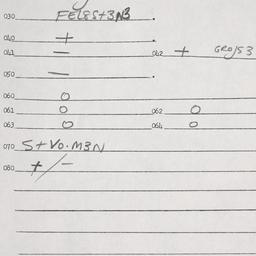 030 FEL8St3N3 .
040 + .
041 — 042 + GROJS 3
050 — .
060 O
061 O 062 O
063 O 064 O
070 StVO.M3N
080 +/-